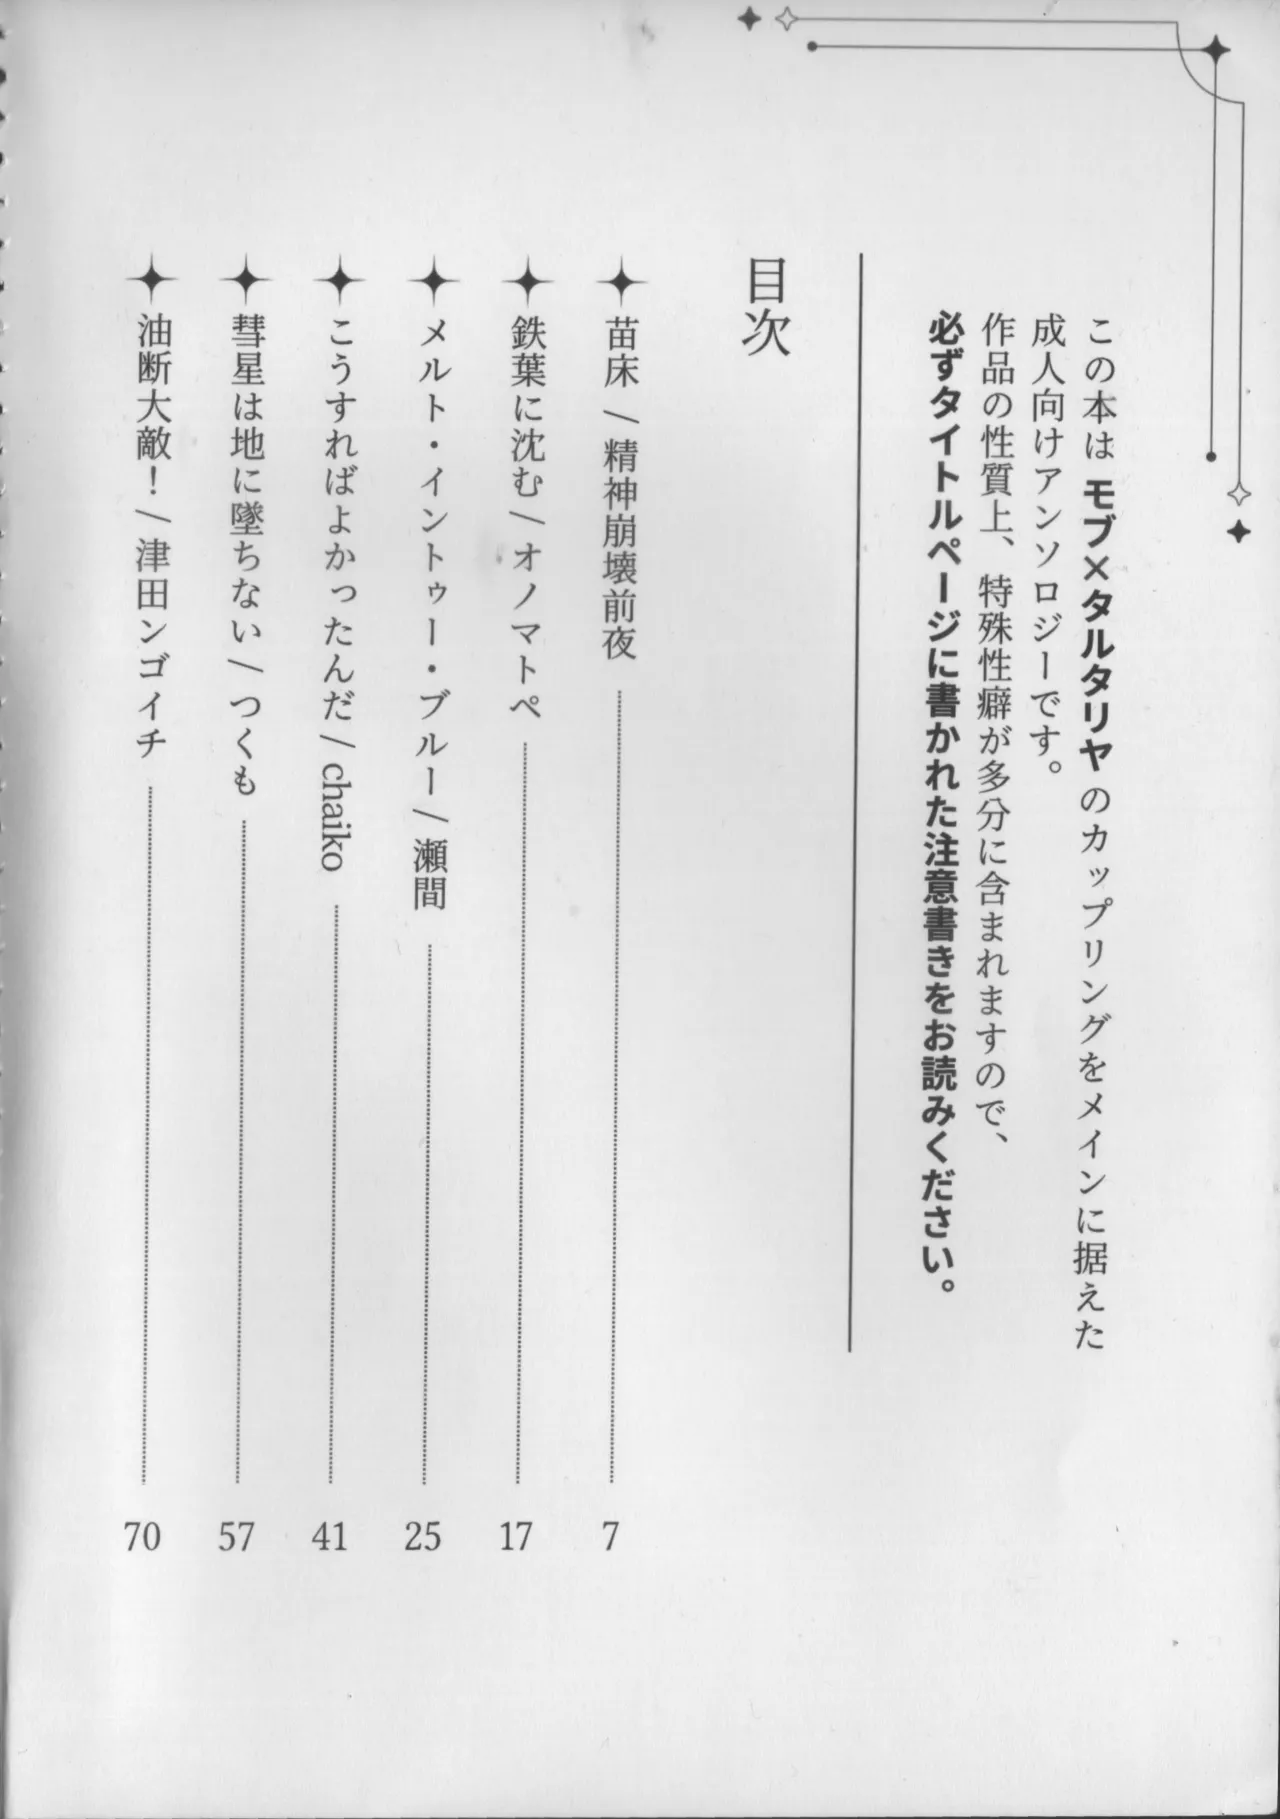 この本は モブ×タルタリヤ のカップリングをメインに据えた
成人向けアンソロジーです。
作品の性質上、特殊性癖が多分に含まれますので、
必ずタイトルページに書かれた注意書きをお読みください。
目次
苗床 / 精神崩壊前夜 7
鉄葉に沈む / オノマトペ 17
メルト・イントゥー・ブルー / 瀬間 25
こうすればよかったんだ / chaiko 41
彗星は地に墜ちない / つくも 57
油断大敵! / 津田ンゴイチ 70